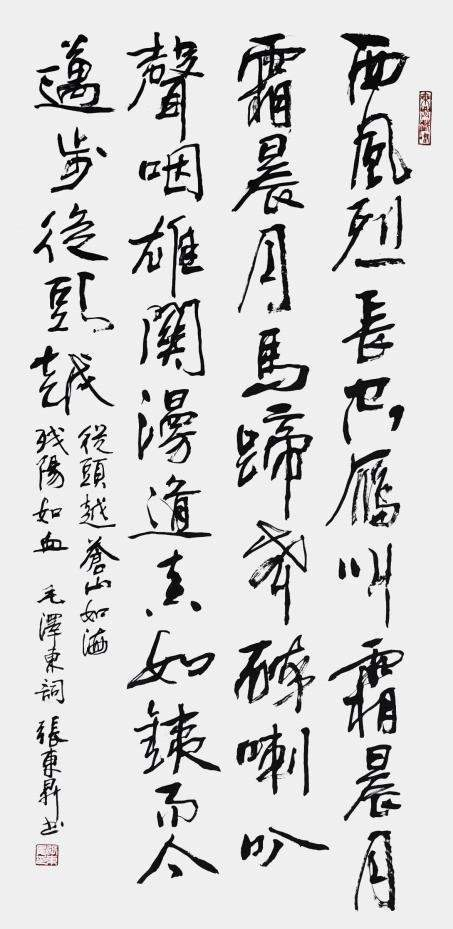 西風烈長空雁叫霜晨月
霜晨月馬蹄声碎喇叭
聲咽雄關漫道真如銕而今
邁步從頭越
從頭越蒼山如海
残陽如血 毛澤東詞 張東书